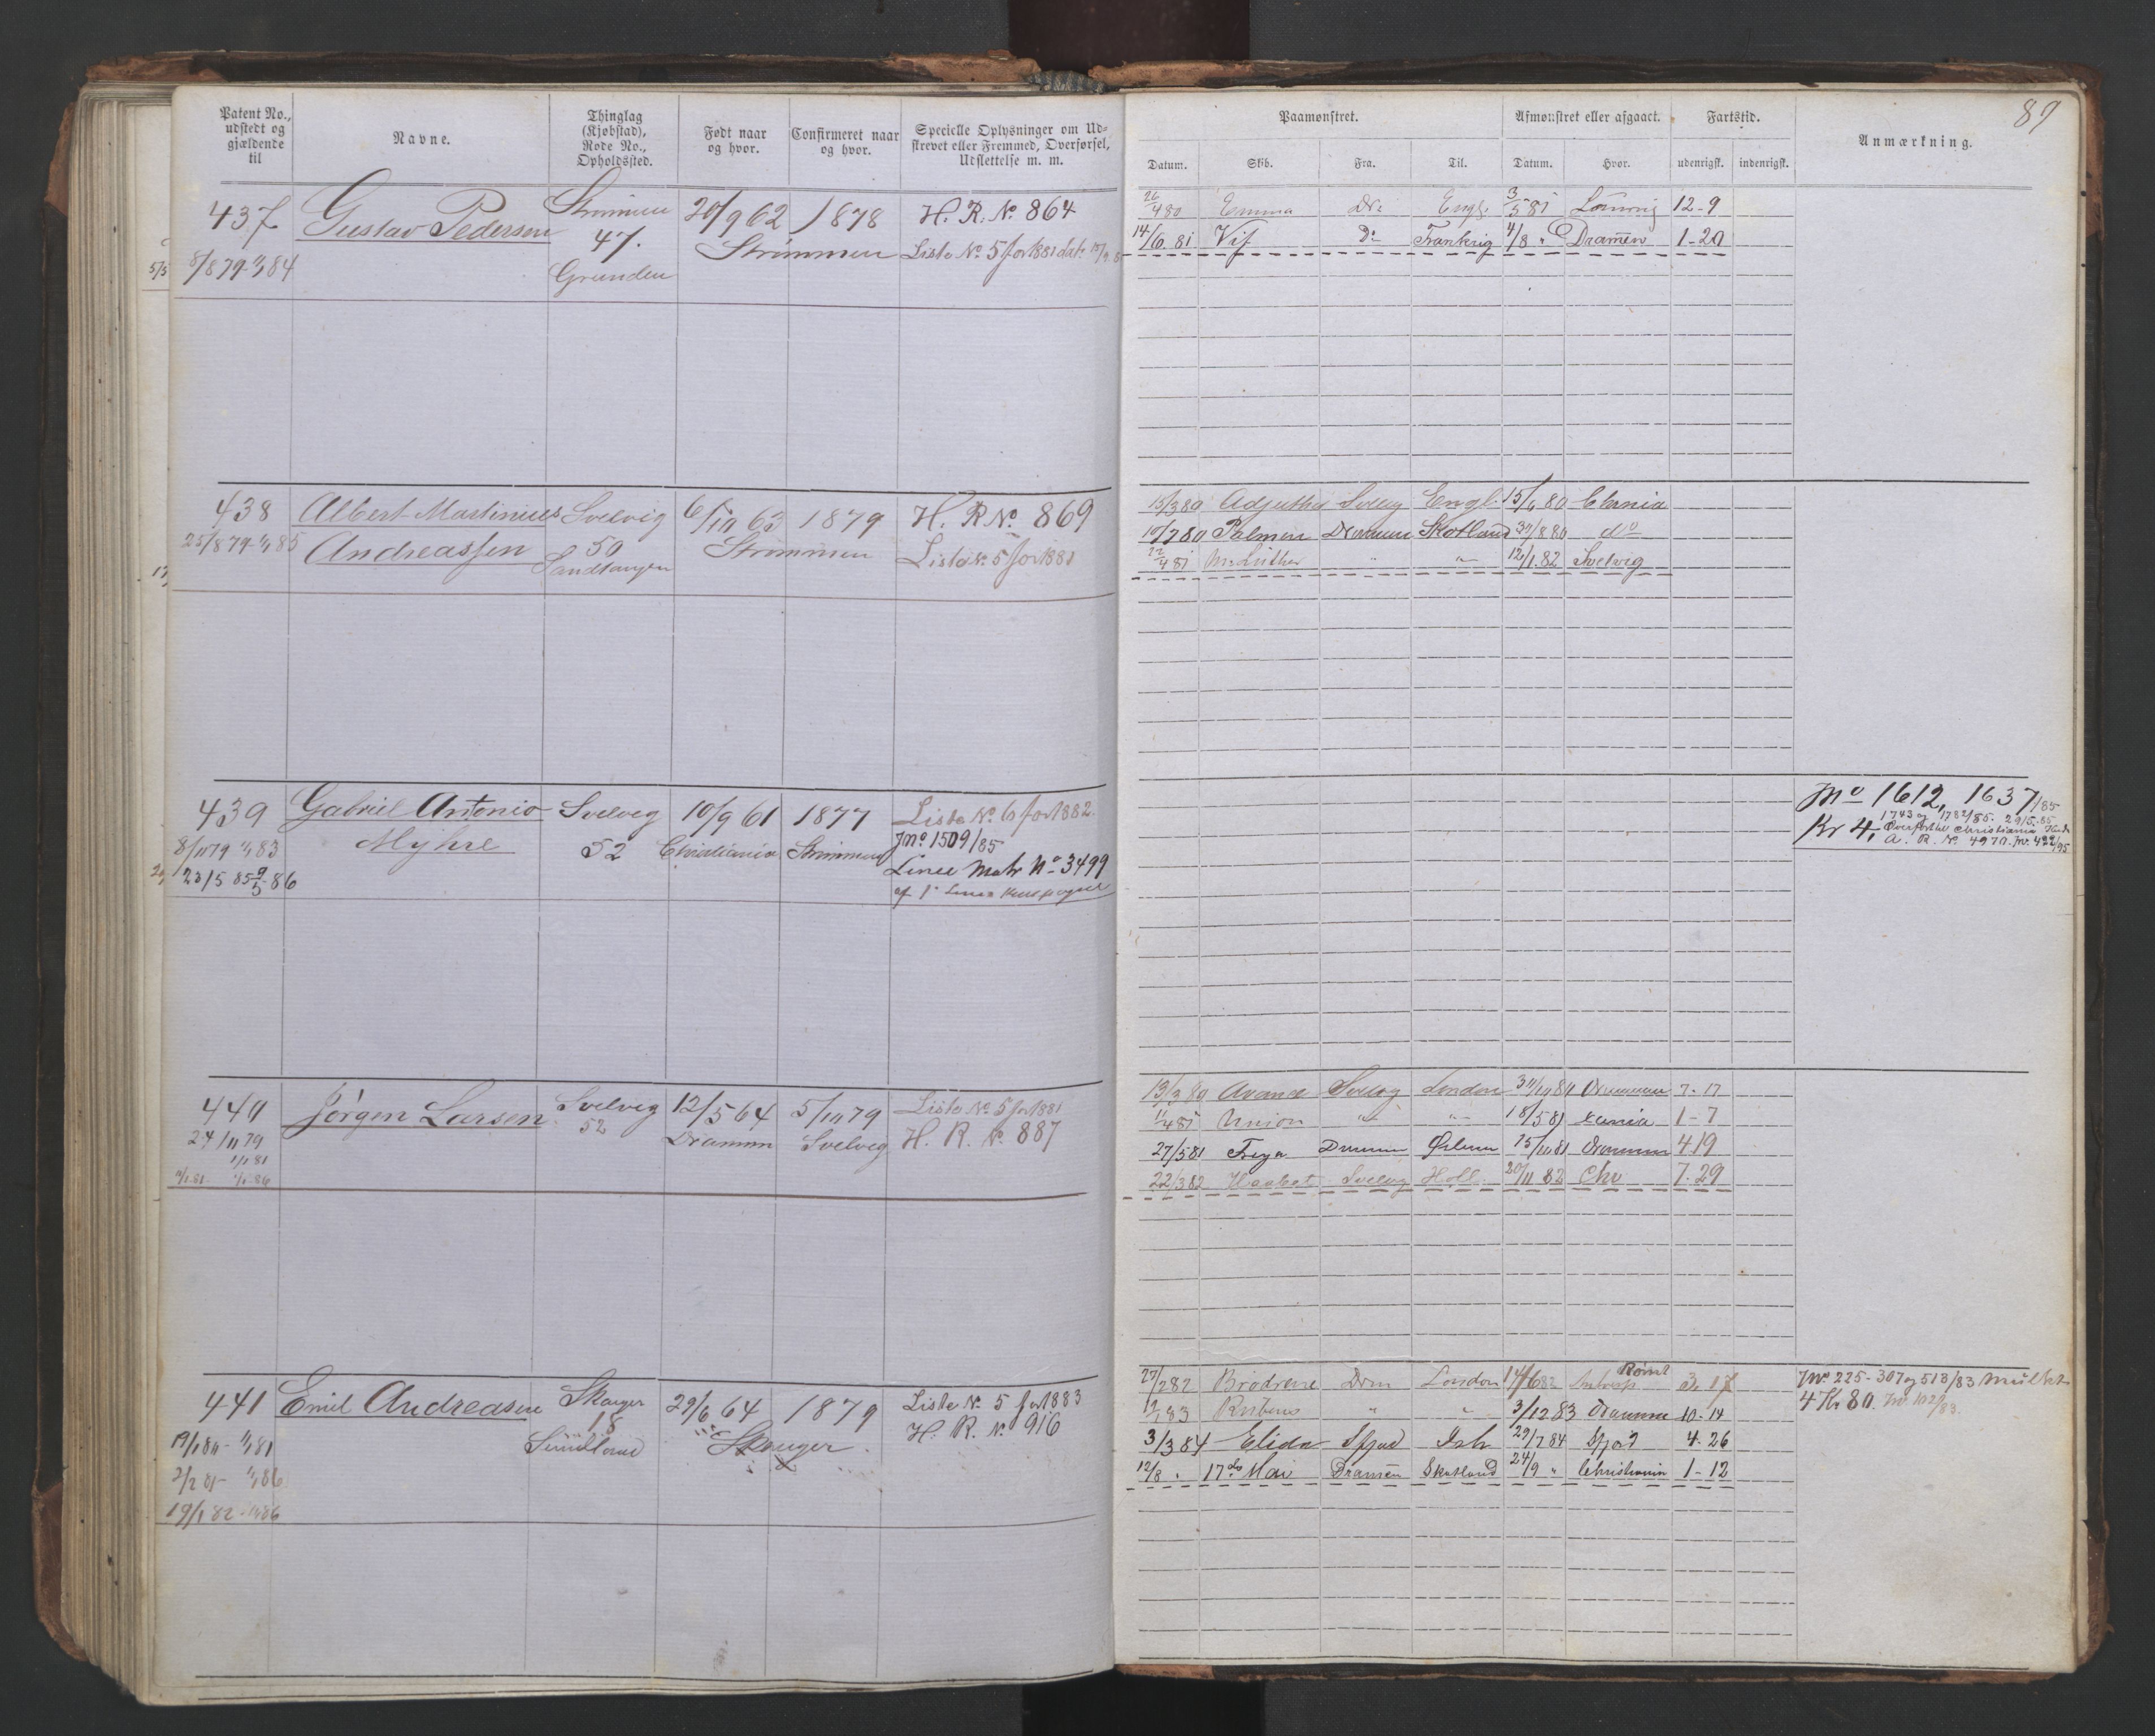 Patent No.,
udstedt og
gjældende
til
Navne.
Thinglag
(Kjøbstad),
Rode No.,
Opholdssted.
Født naar
og hvor.
Confirmeret naar
og hvor.
Specielle Oplysninger om Ud-
skrevet eller Fremmed, Overførsel,
Udslettelse m. m.
437
8/8 79 - 1/1 84
Gustav Pedersen
Strømmen
47.
Grunden
20/9 62
1878
Strømmen
H. R. No. 864
Liste No. 5 for 1881
438
25/8 79 - 1/1 85
Albert Martinius
Andreassen
Svelvig
50
Sandtangen
6/10 63
1879
Strømmen
H. R No. 869
Liste No. 5 for 1881
439
8/11 79 1/1 83
23/5 85 9/5 86
Gabriel Antonio
Myhre
Svelvig
52
10/9 61
Christiania
1877
Strømmen
Liste No. 6 for 1882.
Jno. 1509/85
Linee Matr No 3499
440
24/11 79
1/1 81
1/1 86
Jörgen Larsen
Svelvig
52
12/5 64
Drammen
5/10 79
Svelvig
Liste No. 5 for 1881
H. R. No. 887
441
19/1 80 - 1/1 81
2/2 81 - 1/1 86
19/1 82 - 1/1 86
Emil Andreasen
Skouger
18
29/6 64
1879
Skouger
Liste No. 5 for 1883
H. R. No. 916
89
Paamønstret.
Afmønstret eller afgaaet.
Fartstid.
Anmærkning.
Datum.
Skib.
Fra.
Til.
Datum.
Hvor.
udenrigsk.
indenrigsk.
26/4 80 Emma Dr: Engl. 3/5 81 12-9
14/6 81 Vif Do Frankrig 4/8 " Dramen 1-20
15/3 80 Svelvig Engl. 15/6 80 Chrania
10/7 80 Palmen Drammen Skotland 30/8 80 do
22/4 81 M. Luther " " 12/1 82 Svelvig
Jno 1612, 1637/85
1743 og 1782/85. 2915/85
Kr 4, Overført til Christiania
A. R. No. 4970. Jno. 422/95
13/3 80 Avance Svelvig London 30/10 80 Drammen 7-17
11/4 81 Union " " 18/5 81 Xania 1-7
27/5 81 Freya Drammen 15/10 81 Drammen 4 19
22/3 82 Haabet Svelvig Holl. 20/11 82 Chr 7.29
27/2 82 Brödrene Drm London 14/6 82 Rømt 3. 17
12/1 83 " " 3/12 83 Dramme 10-14
3/3 84 Elida 29/7 84 4-26
12/8 " 17de Mai Dramen Skotland 24/9 " Christiania 1-12
Jno. 225-307 og 513/83 Mulkt
4 Kr 80. Jno 1022/83.